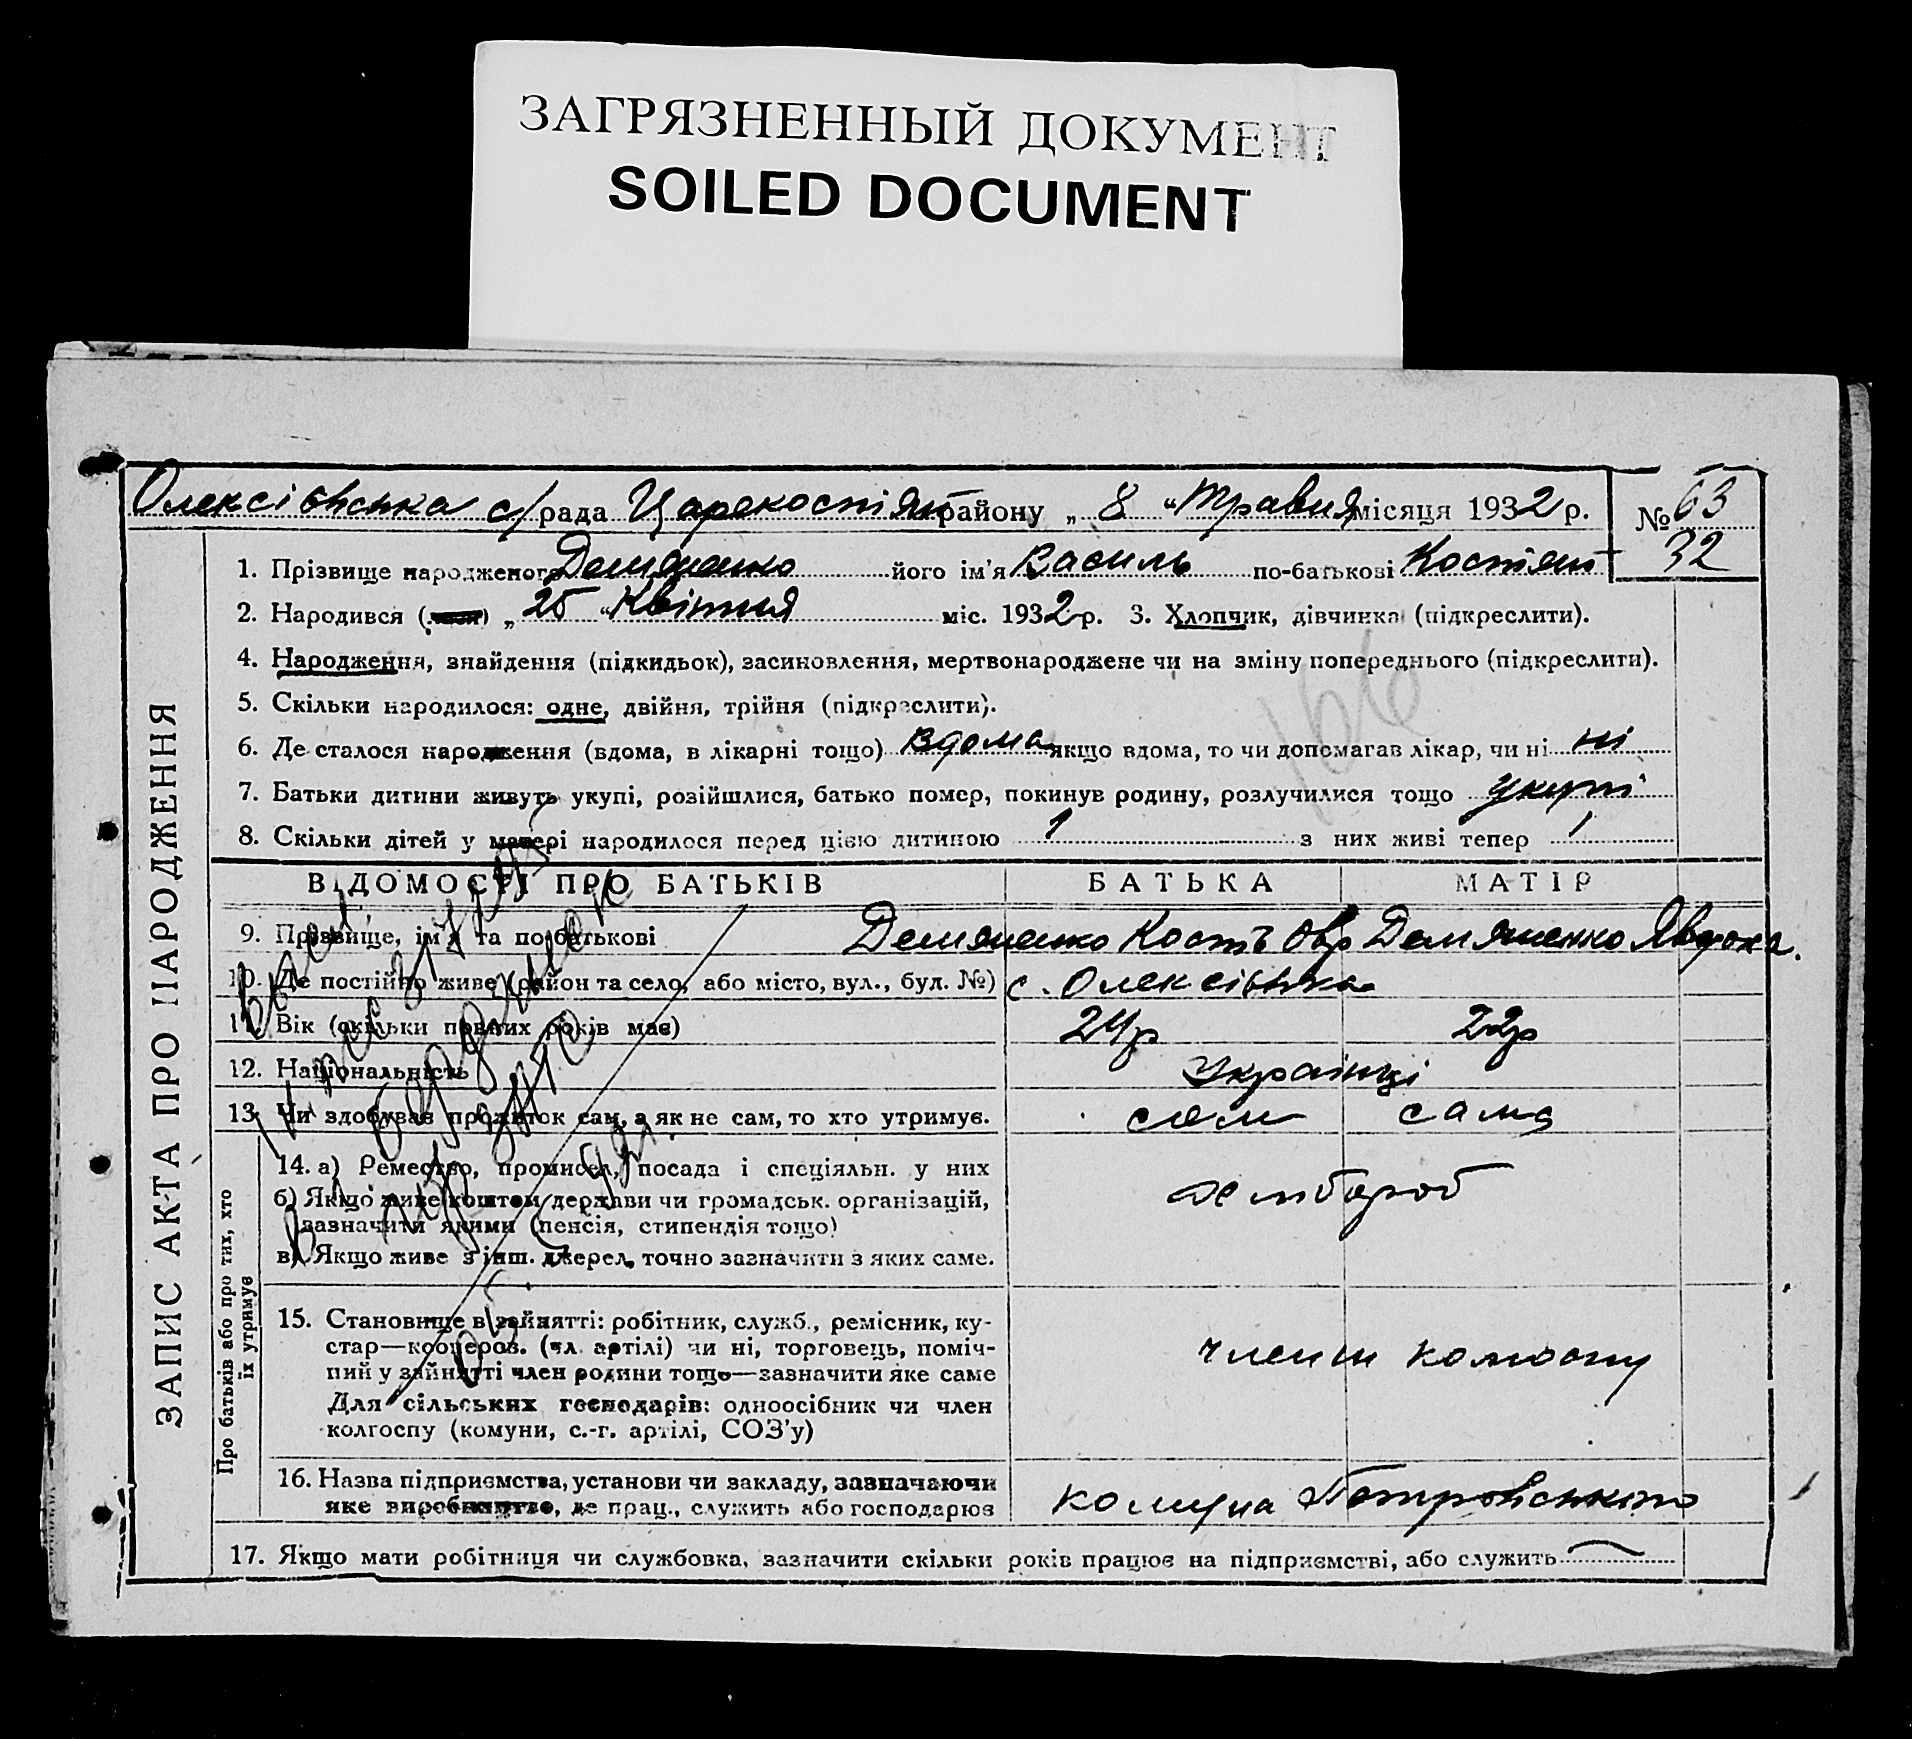 ЗАГРЯЗНЕННЫЙ ДОКУМЕНТ
SOILED DOCUMENT
Олексіївська с/рада Царекостянт району „ 8 “ Травня місяця 1932 р. № 63
32
1. Прізвище народженого Демяненко його ім'я Василь по-батькові Костянт
2. Народився ( ) „ 25 “ Квітня міс. 1932 р. 3. Хлопчик, дівчинка (підкреслити).
4. Народження, знайдення (підкидьок), засиновлення, мертвонароджене чи на зміну попереднього (підкреслити).
5. Скільки народилося: одне, двійня, трійня (підкреслити).
6. Де сталося народження (вдома, в лікарні тощо) вдома якщо вдома, то чи допомагав лікар, чи ні ні
7. Батьки дитини живуть укупі, розійшлися, батько помер, покинув родину, розлучилися тощо укупі
8. Скільки дітей у матері народилося перед цією дитиною 1 з них живі тепер 1
166
ВІДОМОСТІ ПРО БАТЬКІВ БАТЬКА МАТІР
9. Прізвище, ім'я та по батькові Демяненко Кость Демяненко Явдоха.
10. Де постійно живе (район та село, або місто, вул., буд. №) с. Олексіївка
11. Вік (скільки повних років має) 24р 22р
12. Національність Українці
13. Чи здобуває прожиток сам, а як не сам, то хто утримує. сам сама
14. а) Ремество, промисел, посада і спеціяльн. у них хлібороб
б) Якщо живе коштом держави чи громадськ. організацій,
зазначити якими (пенсія, стипендія тощо)
в) Якщо живе з інш. джерел, точно зазначити з яких саме.
15. Становище в зайнятті: робітник, служб., ремісник, ку-
стар—кооперов. (чл. артілі) чи ні, торговець, поміч-
ний у зайнятті член родини тощо—зазначити яке саме члени колгоспу
Для сільських господарів: одноосібник чи член
колгоспу (комуни, с.-г. артілі, СОЗ'у)
16. Назва підприємства, установи чи закладу, зазначаючи
яке виробництво, де прац., служить або господарює комуна Петровського
17. Якщо мати робітниця чи службовка, зазначити скільки років працює на підприємстві, або служить
ЗАПИС АКТА ПРО НАРОДЖЕННЯ
Про батьків або про тих, хто
їх утримує